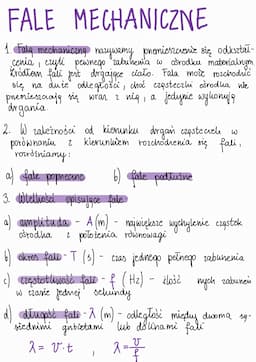 FALE MECHANICZNE
1. Falą mechaniczną nazywamy przemieszczanie się odkształ-
cenia, czyli pewnego zaburzenia w ośrodku materialnym.
Źródłem fali jest drgające ciało. Fala może rozchodzić
się na duże odległości, choć cząsteczki ośrodka nie
przemieszczają się wraz z nią, a jedynie wykonują
drgania.
2. W zależności od kierunku drgań cząsteczek w
porównaniu z kierunkiem rozchodzenia się fali,
rozróżniamy:
a) fale poprzeczne b) fale podłużne
3. Wielkości opisujące fale
a) amplituda - A (m) - największe wychylenie cząstek
ośrodka z położenia równowagi
b) okres fali - T (s) - czas jednego pełnego zaburzenia
c) częstotliwość fali - f (Hz) - ilość zaburzeń
w czasie jednej sekundy
d) długość fali - λ (m) - odległość między dwoma są-
siednimi grzbietami lub dolinami fali
λ = v·t , λ = v/f